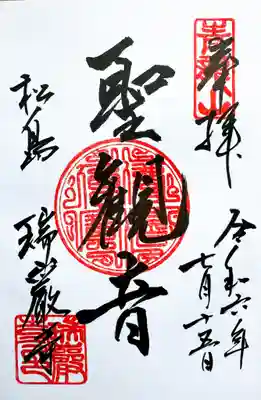 奉拝
令和六年
七月十五日
聖観音
松島
瑞巌寺